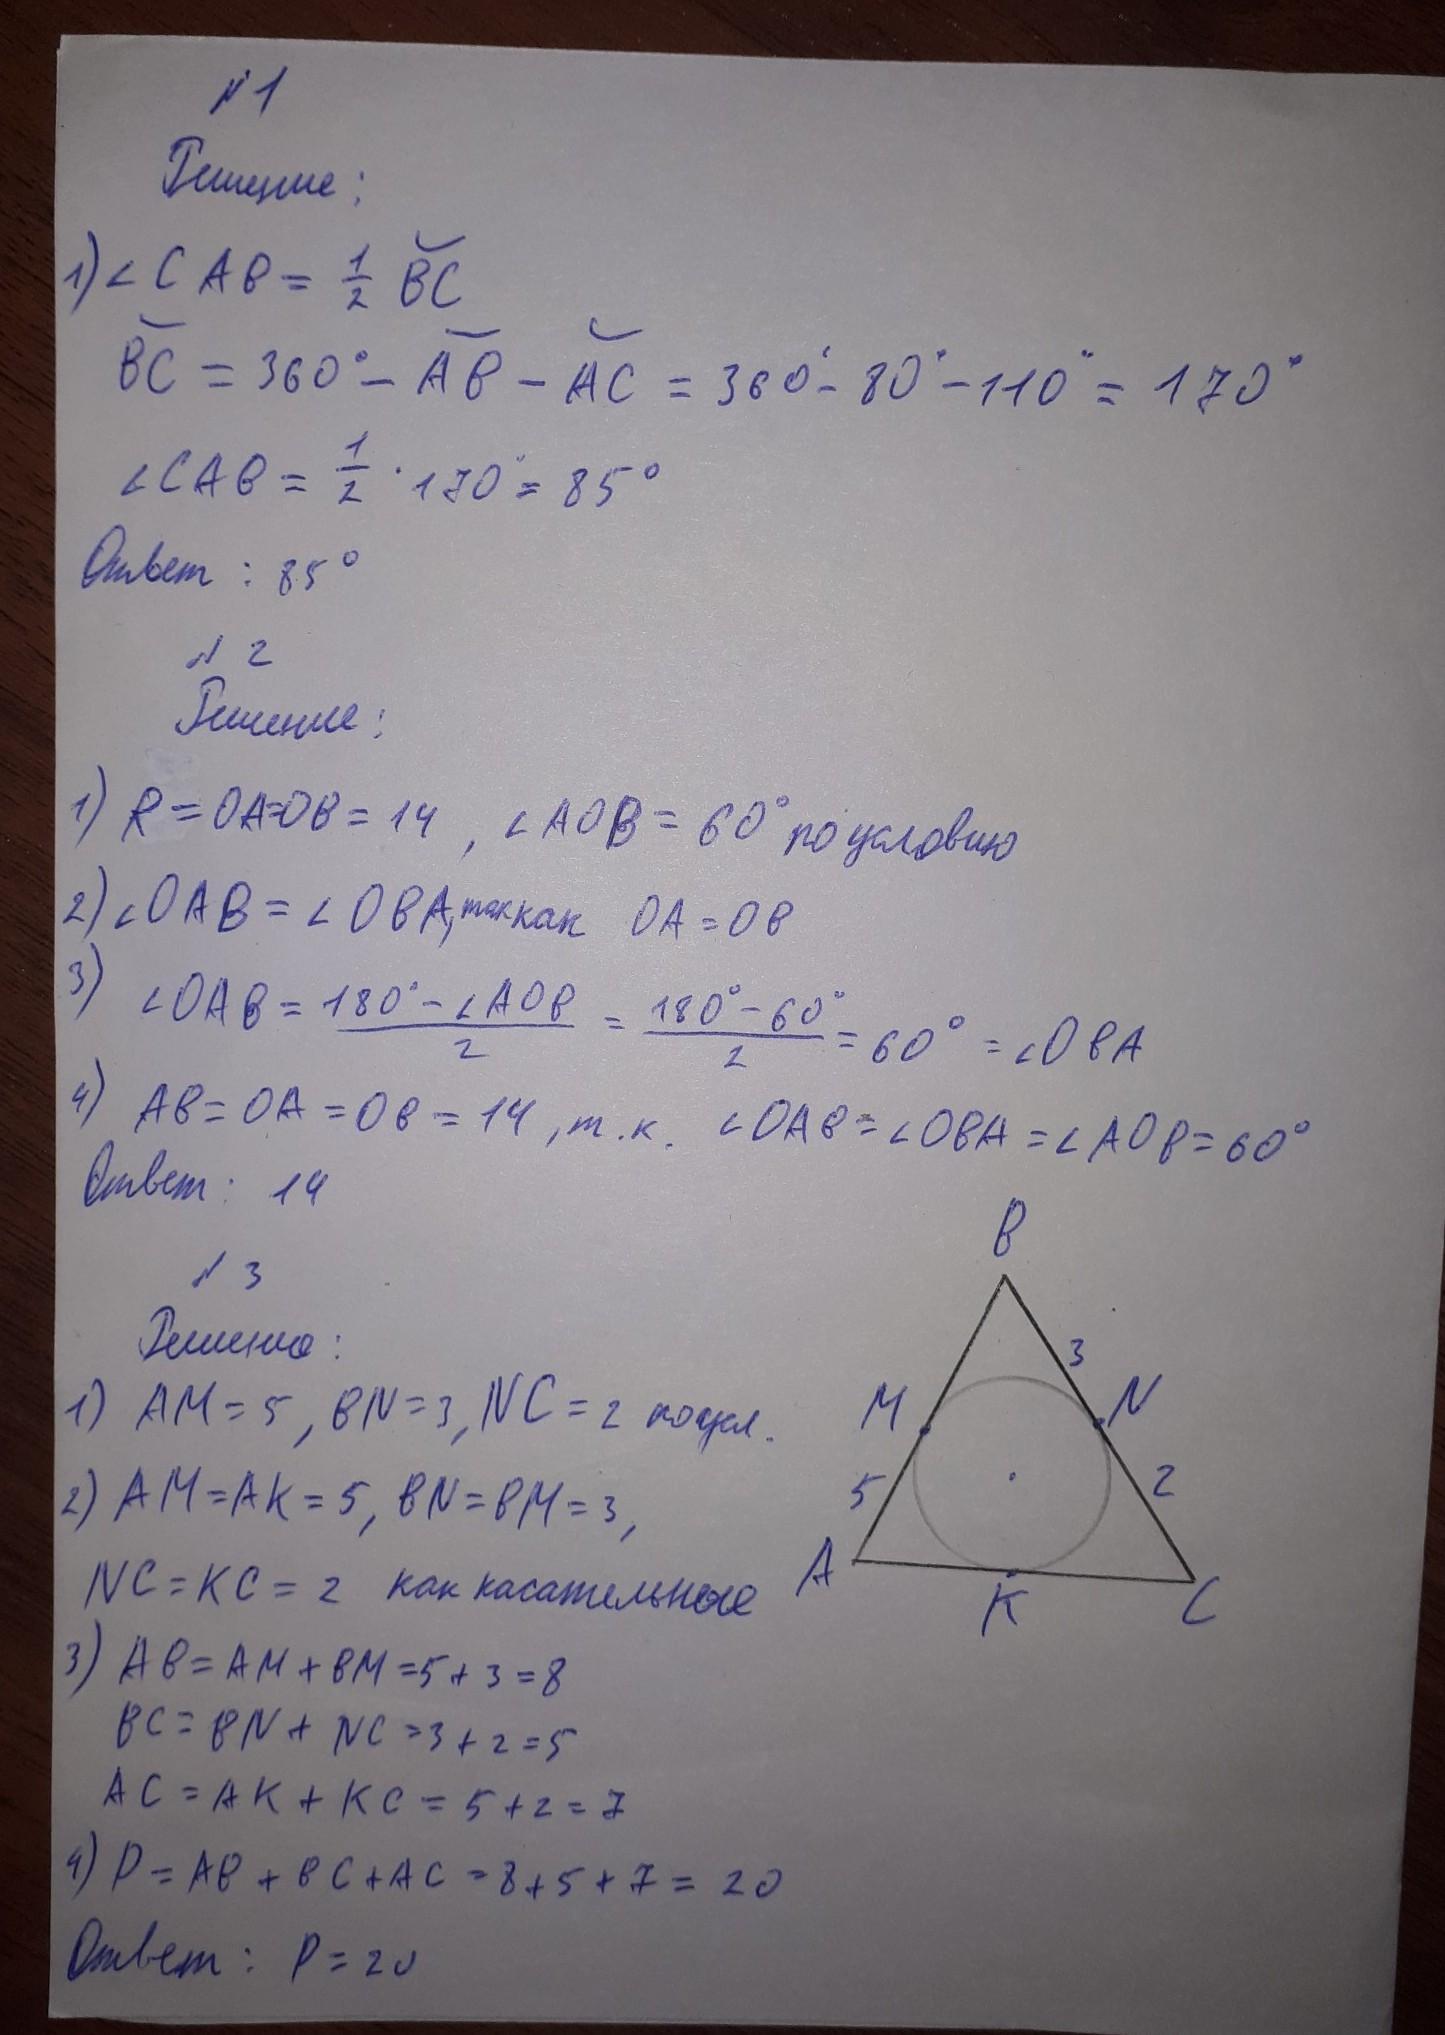 №1
Решение:
1) ∠CAB = 1/2 ◡BC
◡BC = 360° - ◡AB - ◡AC = 360° - 80° - 110° = 170°
∠CAB = 1/2 · 170° = 85°
Ответ: 85°
№ 2
Решение:
1) R = OA=OB = 14, ∠AOB = 60° по условию
2) ∠OAB = ∠OBA, так как OA = OB
3) ∠OAB = (180° - ∠AOB)/2 = (180° - 60°)/2 = 60° = ∠OBA
4) AB = OA = OB = 14, т.к. ∠OAB = ∠OBA = ∠AOB = 60°
Ответ: 14
№ 3
Решение:
1) AM = 5, BN = 3, NC = 2 по усл.
2) AM = AK = 5, BN = BM = 3,
NC = KC = 2 как касательные
3) AB = AM + BM = 5 + 3 = 8
BC = BN + NC = 3 + 2 = 5
AC = AK + KC = 5 + 2 = 7
4) P = AB + BC + AC = 8 + 5 + 7 = 20
Ответ: P = 20
B
3
M
N
5
2
A
K
C